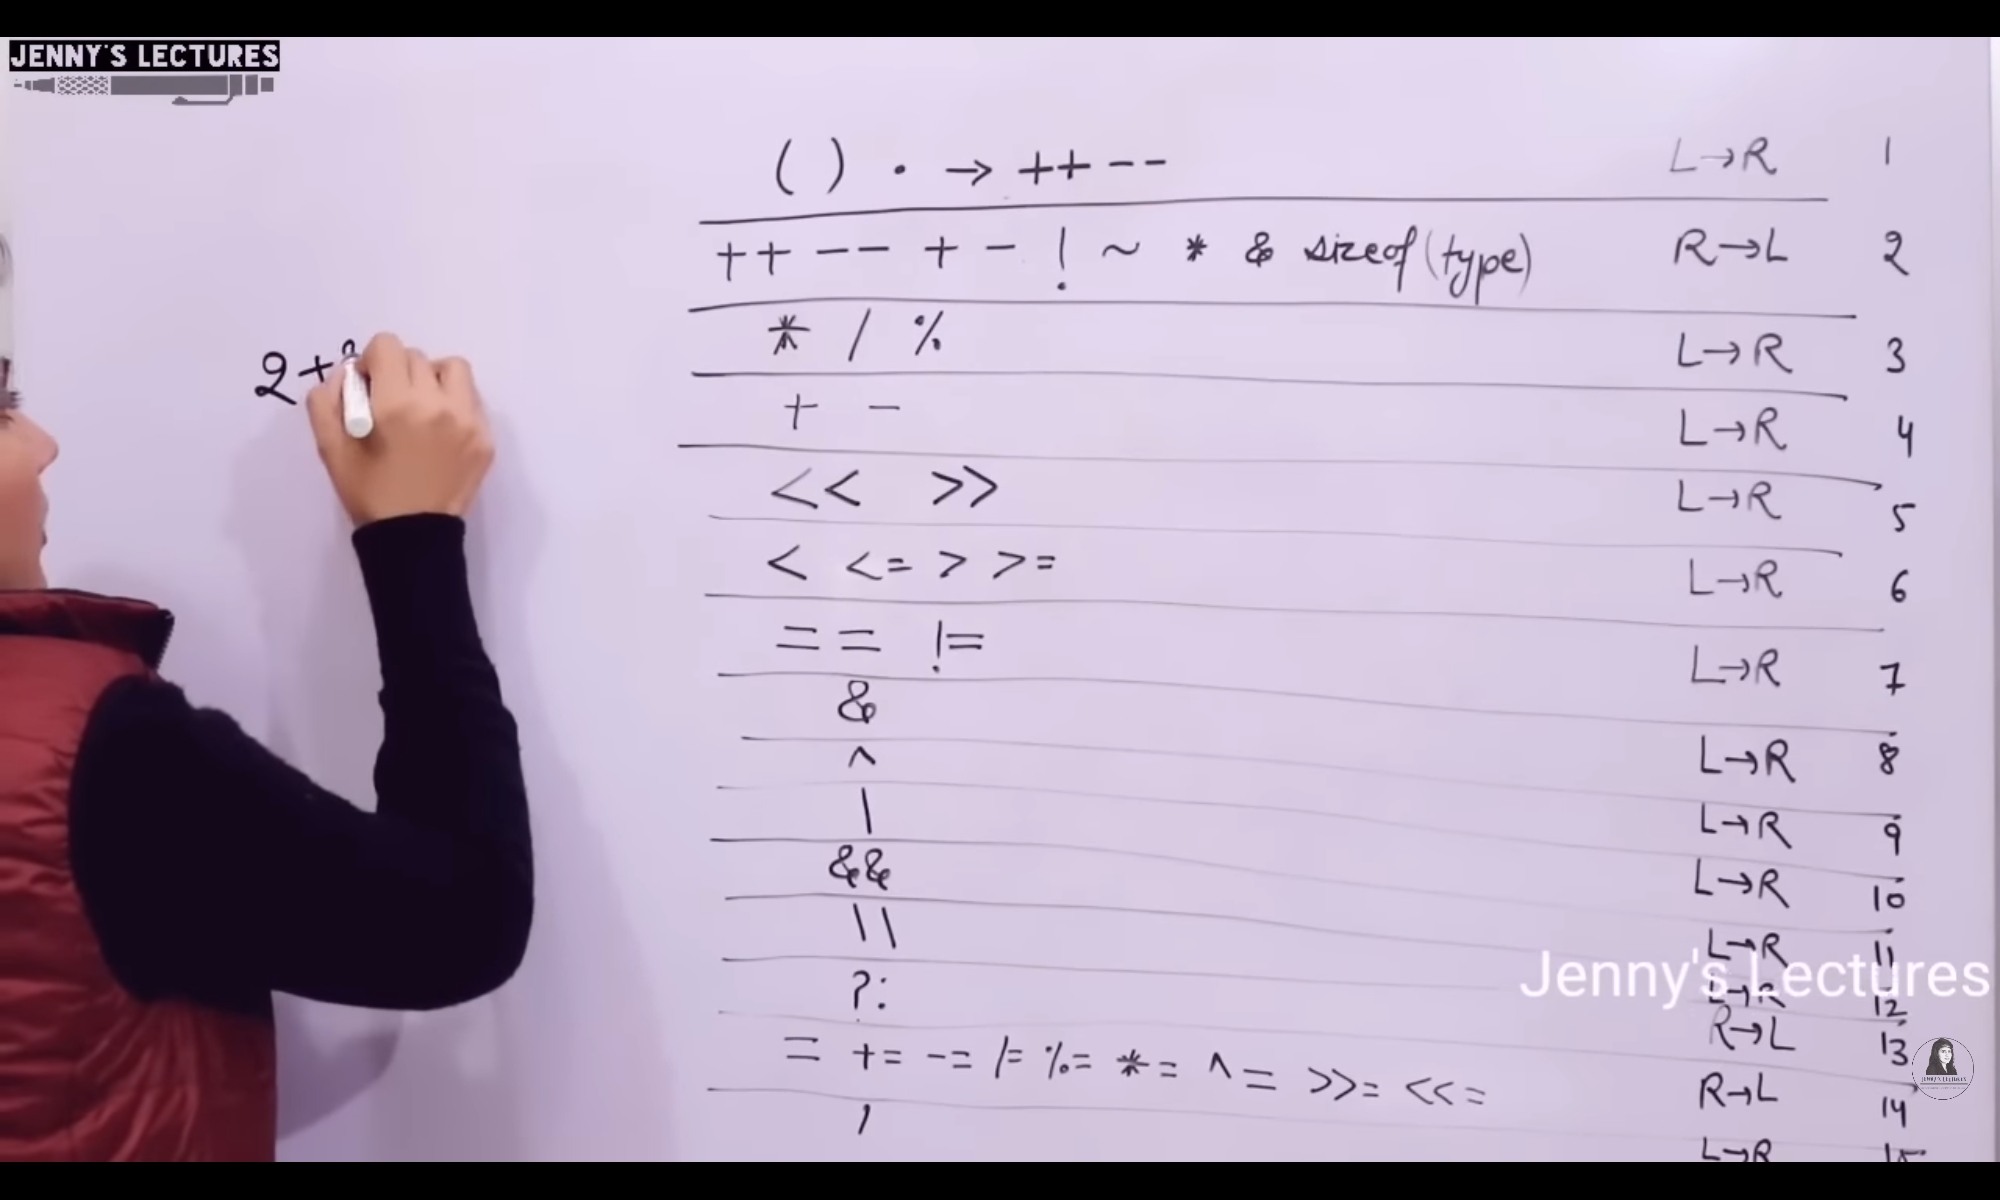 JENNY'S LECTURES
( ) . → ++ -- L→R 1
++ -- + - ! ~ * & sizeof (type) R→L 2
* / % L→R 3
2+
+ - L→R 4
<< >> L→R 5
< <= > >= L→R 6
== != L→R 7
& L→R 8
^ L→R 9
| L→R 10
&& L→R 11
|| L→R 12
Jenny's Lectures
?: R→L 13
= += -= /= %= *= ^= >>= <<= R→L 14
, L→R 15
JENNY'S LECTURES